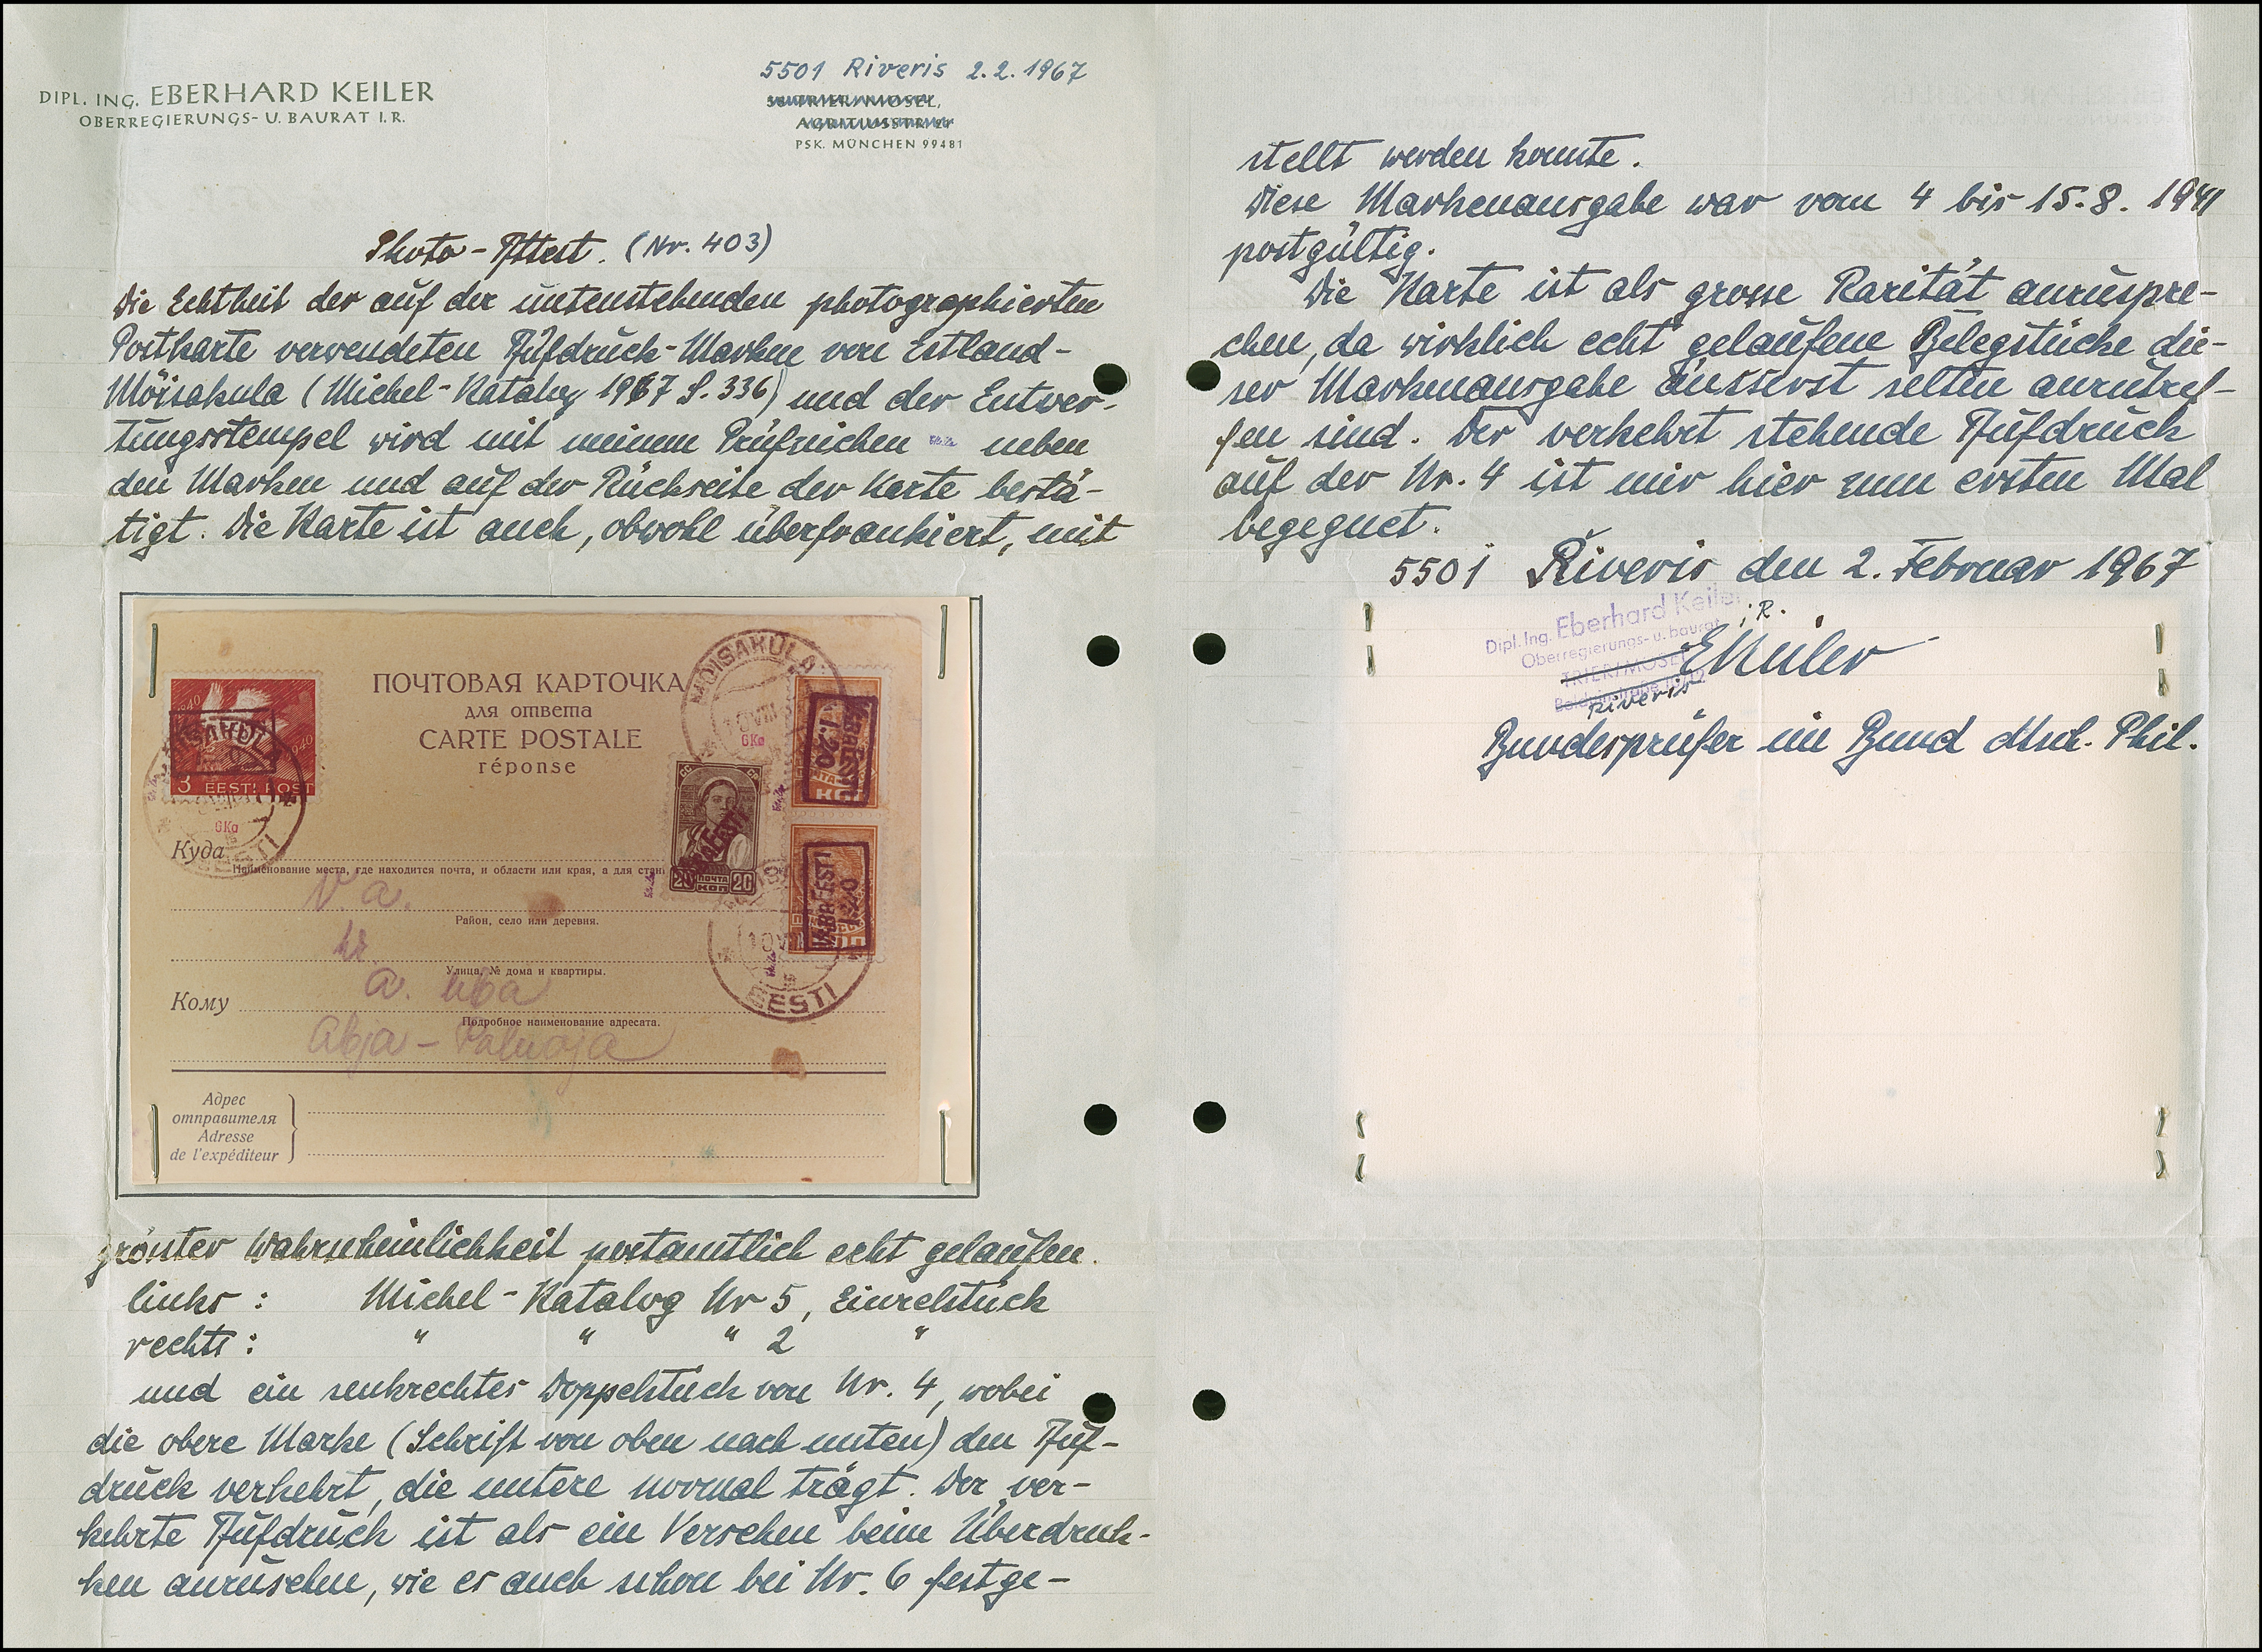 DIPL. ING. EBERHARD KEILER
OBERREGIERUNGS- U. BAURAT I.R.
5501 Riveris 2.2.1967
55 TRIER/MOSEL,
AGRITIUSSTR.
PSK. MÜNCHEN 99481
Photo-Attest. (Nr. 403)
Die Echtheit der auf der untenstehenden photographierten
Postkarte verwendeten Aufdruck-Marken von Estland-
Möisakula (Michel-Katalog 1967 S. 336) und der Entwer-
tungsstempel wird mit meinem Prüfzeichen neben
den Marken und auf der Rückseite der Karte bestä-
tigt. Die Karte ist auch, obwohl überfrankiert, mit
ПОЧТОВАЯ КАРТОЧКА
для ответа
CARTE POSTALE
réponse
MÕISAKÜLA
EESTI
1940
1940
3 EESTI POST
GKa
GKa
VABA EESTI
1.20
КОП
VABA EESTI
20 ПОЧТА КОП 20
VABA EESTI
1.20
10 VIII
EESTI
Куда
Наименование места, где находится почта, и области или края, а для
V. a.
Район, село или деревня.
hr.
Улица, № дома и квартиры.
Кому
A. Uba
Подробное наименование адресата.
Abja-Paluoja
Адрес
отправителя
Adresse
de l'expéditeur
grösster Wahrscheinlichkeit postamtlich echt gelaufen.
links: Michel-Katalog Nr 5, Einzelstück
rechts: " " " 2 "
und ein senkrechtes Doppelstück von Nr. 4, wobei
die obere Marke (Schrift von oben nach unten) den Auf-
druck verkehrt, die untere normal trägt. Der ver-
kehrte Aufdruck ist als ein Versehen beim Überdruk-
ken anzusehen, wie es auch schon bei Nr. 6 festge-
stellt werden konnte.
Diese Markenausgabe war vom 4 bis 15.8. 1941
postgültig.
Die Karte ist als grosse Rarität anzuspre-
chen, da wirklich echt gelaufene Belegstücke die-
ser Markenausgabe äusserst selten anzutref-
fen sind. Der verkehrt stehende Aufdruck
auf der Nr. 4 ist mir hier zum ersten Mal
begegnet.
5501 Riveris den 2. Februar 1967
Dipl. Ing. Eberhard Keiler
Oberregierungs- u. baurat i. R.
TRIER/MOSEL
Riveris
EKeiler
Bundesprüfer im Bund dtsch. Phil.